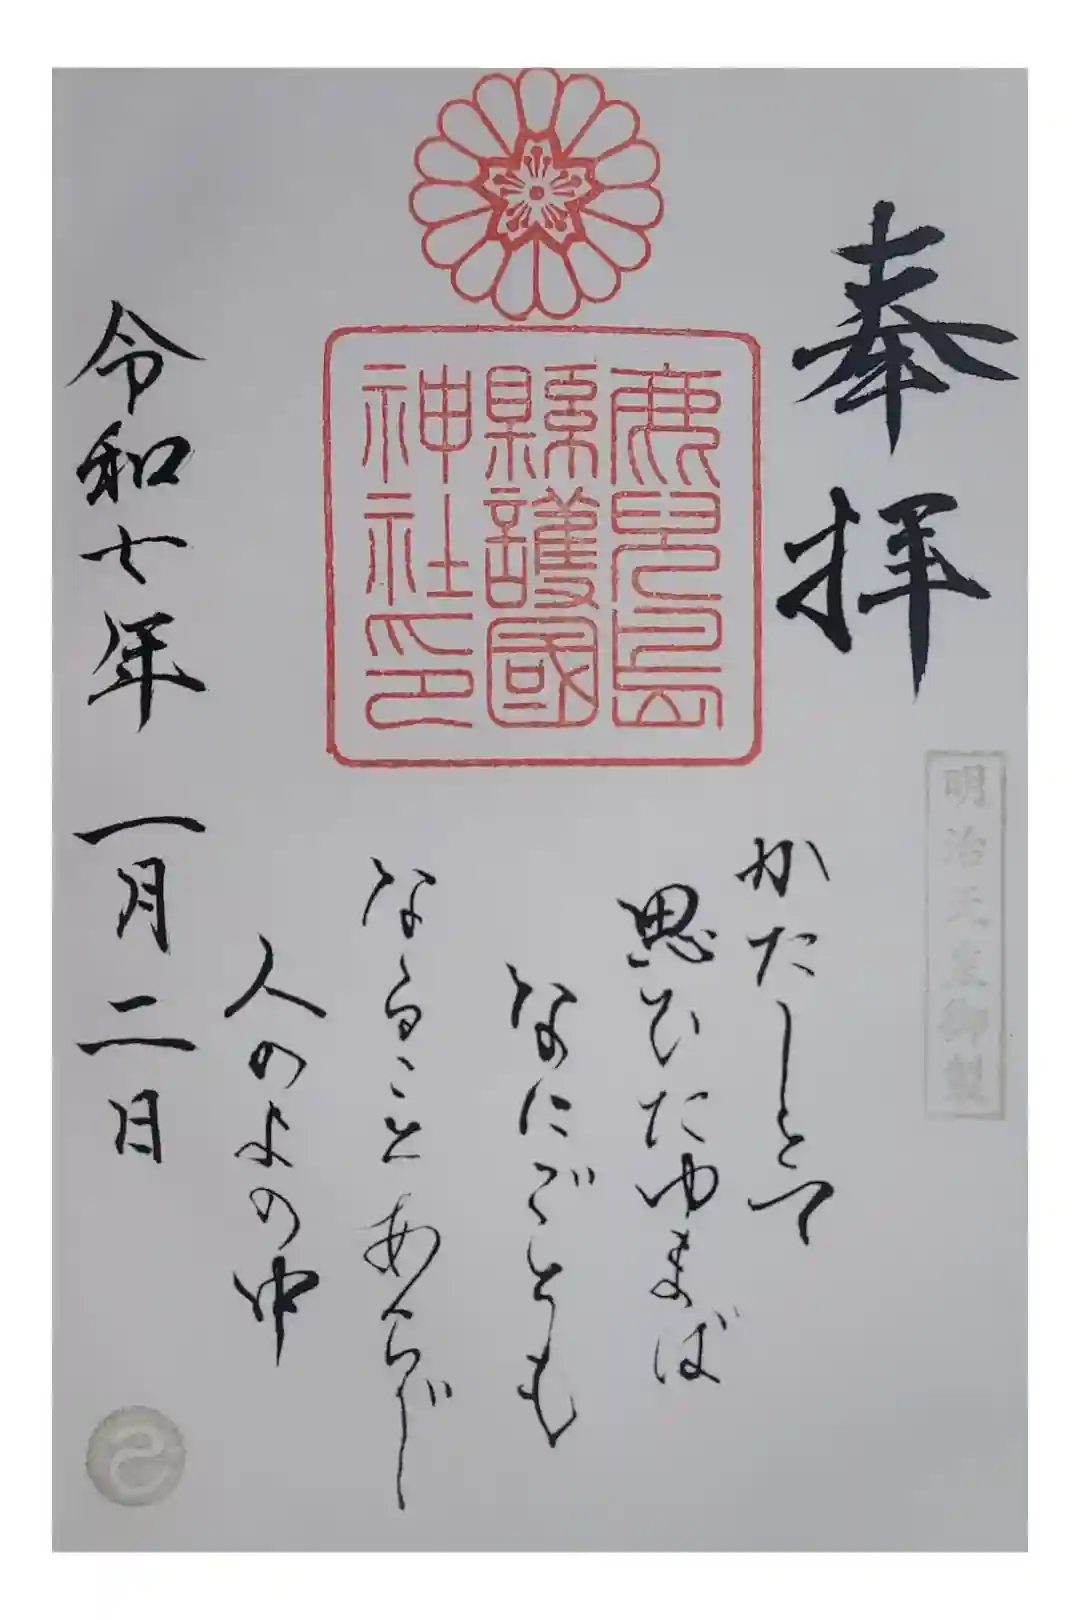 奉拝
明治天皇御製
鹿児島
縣護國
神社印
かたしとて
思ひたゆまば
なにごとも
なることあらじ
人のよの中
令和七年 一月二日